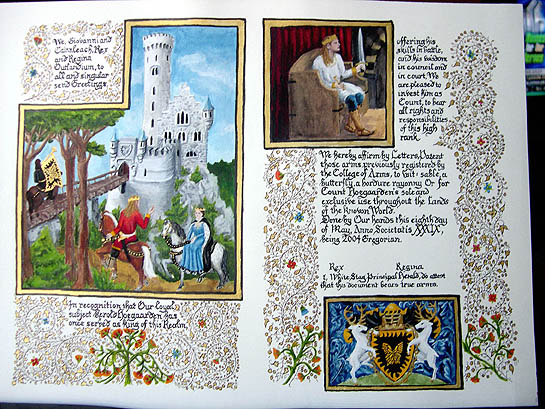 We, Giovanni and
Cainleach, Rex
and Regina
Outlandum, to
all and singular
send Greetings.
In recognition that Our loyal
subject Herold Hozgaarden has
once served as King of this Realm,
offering his
skills in battle,
and his wisdom
in council and
in court, We
are pleased to
invest him as
Count, to bear
all rights and
responsibilities
of this high
rank.
We hereby affirm by Letters Patent
those arms previously registered by
the College of Arms, to wit: sable, a
butterfly, a bordure rayonny Or for
Count Hozgaarden's sole and
exclusive use throughout the Lands
of the Known World.
Done by Our hands this eighth day
of May, Anno Societatis XXXIX,
being 2004 Gregorian.
Rex Regina
I, White Stag Principal Herald, do attest
that this document bears true arms.